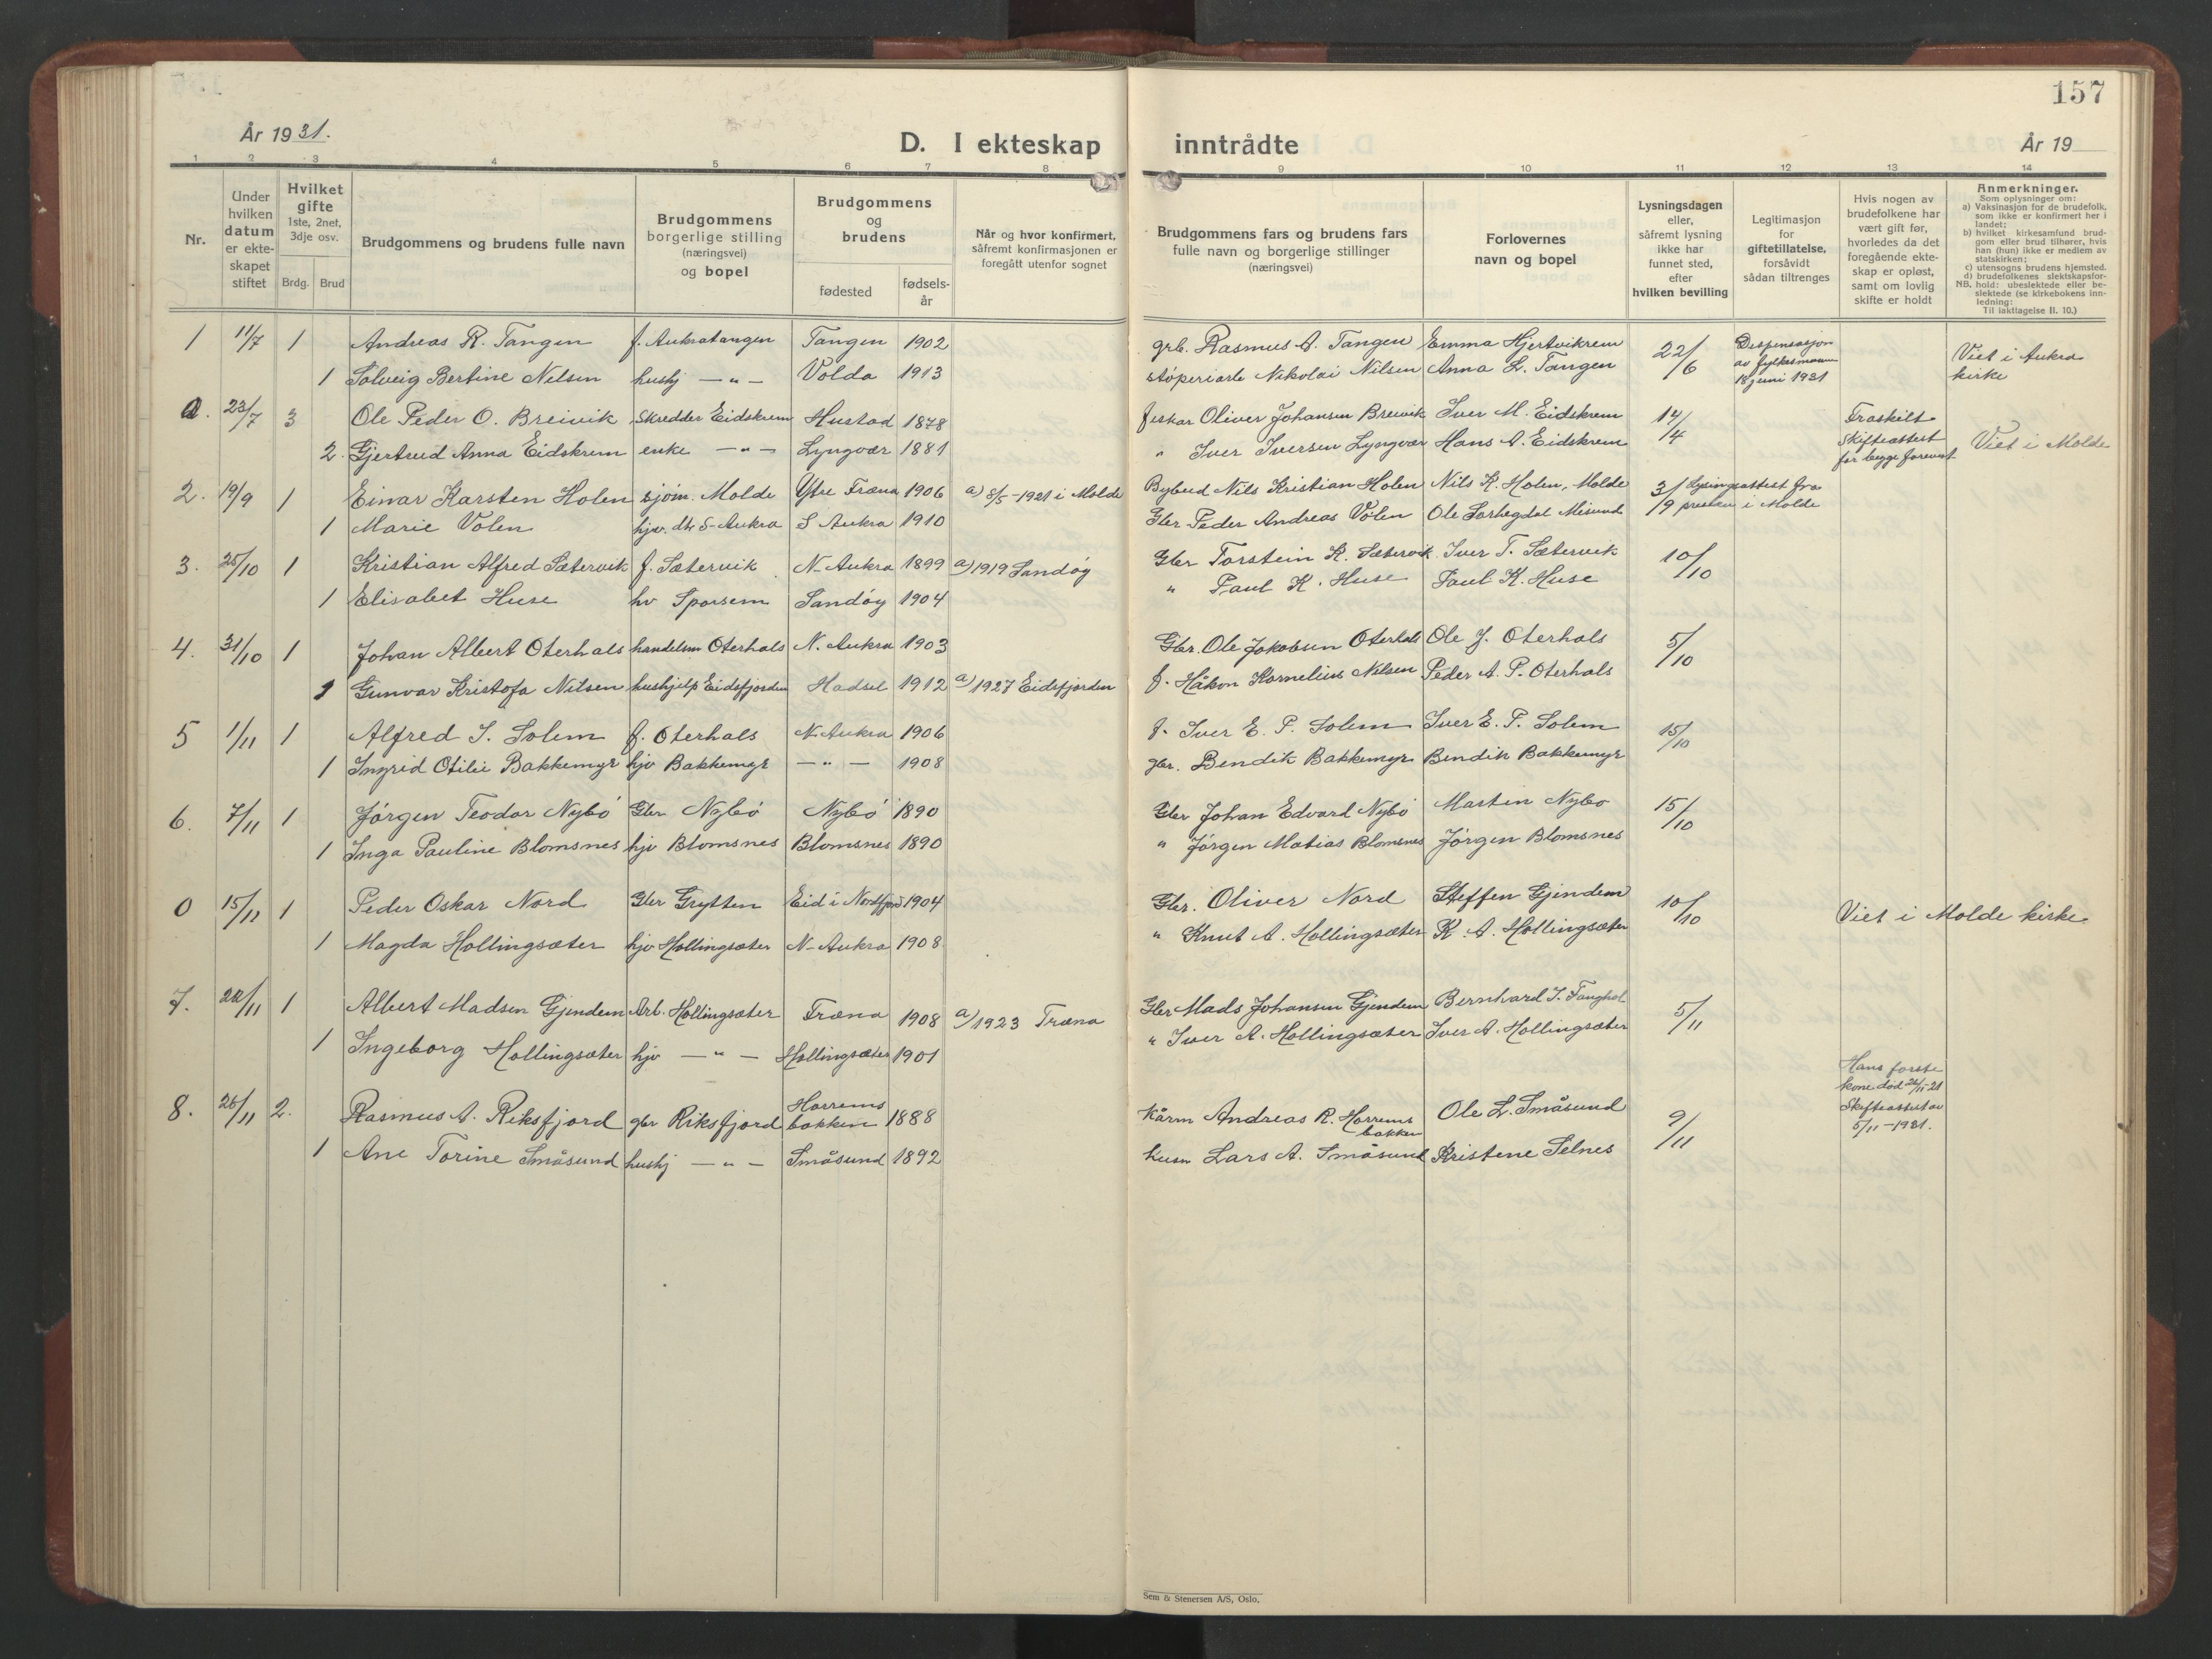 157
År 1931.
D. I ekteskap inntrådte
År 19
1 2 3 4 5 6 7 8 9 10 11 12 13 14
Nr.
Under hvilken datum er ekte-skapet stiftet
Hvilket gifte 1ste, 2net, 3dje osv.
Brdg. Brud
Brudgommens og brudens fulle navn
Brudgommens borgerlige stilling (næringsvei) og bopel
Brudgommens og brudens
fødested
fødsels-år
Når og hvor konfirmert, såfremt konfirmasjonen er foregått utenfor sognet
Brudgommens fars og brudens fars fulle navn og borgerlige stillinger (næringsvei)
Forlovernes navn og bopel
Lysningsdagen eller, såfremt lysning ikke har funnet sted, efter hvilken bevilling
Legitimasjon for giftetillatelse, forsåvidt sådan tiltrenges
Hvis nogen av brudefolkene har vært gift før, hvorledes da det foregående ekte-skap er opløst, samt om lovlig skifte er holdt
Anmerkninger.
Som oplysninger om:
a) Vaksinasjon for de brudefolk, som ikke er konfirmert her i landet;
b) hvilket kirkesamfund brud-gom eller brud tilhører, hvis han (hun) ikke er medlem av statskirken;
c) utensogns brudens hjemsted.
d) brudefolkenes slektskapsfor-hold: ubeslektede eller be-slektede (se kirkebokens inn-ledning:
NB.
Til iakttagelse II. 10.)
1 11/7 1 Andreas R. Tangen f. Aukratangen Tangen 1902 grb. Rasmus A. Tangen Emma Hjertvikrem 22/6 Dispensasjon av fylkesmann 18 juni 1931 Viet i Aukra kirke
1 Solveig Bertine Nelsen hushj — " — Volda 1913 støperiarb Nikolai Nilsen Anna L. Tangen
0. 23/7 3 Ole Peder O. Breivik Skredder Eidskrem Hustad 1878 fiskar Oliver Johansen Breivik Iver M. Eidskrem 14/4 Fraskilt Skifteattest for begge forevist Viet i Molde
2. Gjertrud Anna Eidskrem enke — " — Lyngvær 1881 " Iver Iversen Lyngvær Hans A. Eidskrem
2. 19/9 1 Einar Karsten Holen sjøm. Molde Ytre Fræna 1906 a) 8/5-1921 i Molde Bybud Nils Kristian Holen Nils K. Holen, Molde 3/9 Lysingsattest fra presten i Molde
1 Marie Volen hjv. dtr S-Aukra S Aukra 1910 Gbr Peder Andreas Volen Ole Sørhegdal Misund
3. 25/10 1 Kristian Alfred Sætervik f. Sætervik N-Aukra 1899 a) 1919 Sandøy Gbr Torstein K. Sætervik Iver T. Sætervik 10/10
1 Elisabet Huse hv Sporsem Sandøy 1904 " Paul K. Huse Paul K. Huse
4. 31/10 1 Johan Albert Oterhals handelsm Oterhals N. Aukra 1903 Gbr. Ole Jakobsen Oterhals Ole J. Oterhals 5/10
1 Gunvor Kristofa Nilsen hushjelp Eidsfjorden Hadsel 1912 a) 1927 Eidsfjorden f. Håkon Kornelius Nilsen Peder A. P. Oterhals
5 1/11 1 Alfred I. Solem f. Oterhals N. Aukra 1906 f. Iver E. P. Solem Iver E. P. Solem 15/10
1 Ingrid Otilie Bakkemyr hjv Bakkemyr — " — 1908 gbr. Bendik Bakkemyr Bendik Bakkemyr
6. 7/11 1 Jørgen Teodor Nybø Gbr Nybø Nybø 1890 Gbr Johan Edvard Nybø Martin Nybø 15/10
1 Inga Pauline Blomsnes hjv Blomsnes Blomsnes 1890 " Jørgen Matias Blomsnes Jørgen Blomsnes
0 15/11 1 Peder Oskar Nord Gbr Grytten Eid i Nordfjord 1904 Gbr. Oliver Nord Steffen Gjendem 10/10 Viet i Molde kirke
1 Magda Hollingsæter hjv Hollingsæter N-Aukra 1908 " Knut A. Hollingsæter K. A. Hollingsæter
7. 22/11 1 Albert Madsen Gjendem Arb. Hollingsæter Fræna 1908 a) 1923 Fræna Gbr Mads Johansen Gjendem Bernhard I. Tanghol 5/11
1 Ingeborg Hollingsæter hjv — " — Hollingsæter 1901 " Iver A. Hollingsæter Iver A. Hollingsæter
8. 26/11 2. Rasmus A. Riksfjord gbr Riksfjord Horremsbakken 1888 kårm Andreas R. Horremsbakken Ole L. Småsund 9/11 Hans første kone død 21/11-21 Skifteattest av 5/11-1931.
1 Ane Torine Småsund hushj — " — Småsund 1892 husm Lars A. Småsund Kristene Selnes
Sem & Stenersen A/S, Oslo.